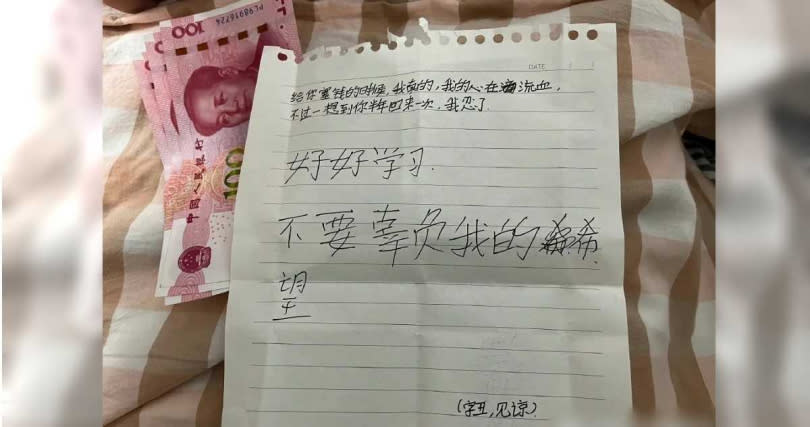 PL98916724
100
中国人民银行
100
DATE
给你塞钱的时候,我真的,我的心在滴流血,
不过一想到你半年回来一次,我忍了.
好好学习.
不要辜负我的希.
望
(字丑,见谅)